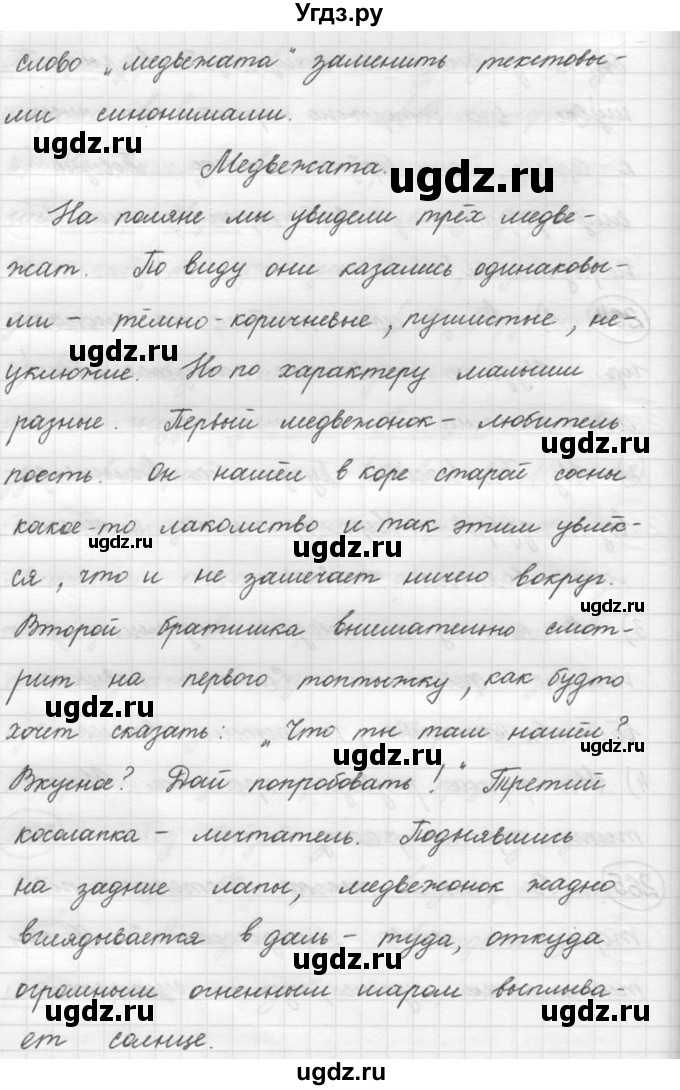 Угдз.ру
слово „медвежата" заменить текстовы-
ми синонимами.
ugdz.ru
Медвежата.
ugdz.ru
На поляне мы увидели трёх медве-
жат. По виду они казались одинаковы-
ugdz.ru
ugdz.ru
ми – тёмно-коричневые, пушистые, не-
ugdz.ru
ugdz.ru
уклюжие. Но по характеру малыши
разные. Первый медвежонок – любитель
ugdz.ru
поесть. Он нашёл в коре старой сосны
какое-то лакомство и так этим увлёк-
ugdz.ru
ugdz.ru
ся, что и не замечает ничего вокруг.
ugdz.ru
Второй братишка внимательно смот-
рит на первого топтыжку, как будто
ugdz.ru
хочет сказать: „Что ты там нашёл?
ugdz.ru
ugdz.ru
Вкусное? Дай попробовать!" Третий
ugdz.ru
косолапка – мечтатель. Поднявшись
на задние лапы, медвежонок жадно
ugdz.ru
вглядывается в даль – туда, откуда
ugdz.ru
ugdz.ru
огромным огненным шаром выплыва-
ugdz.ru
ет солнце.
ugdz.ru